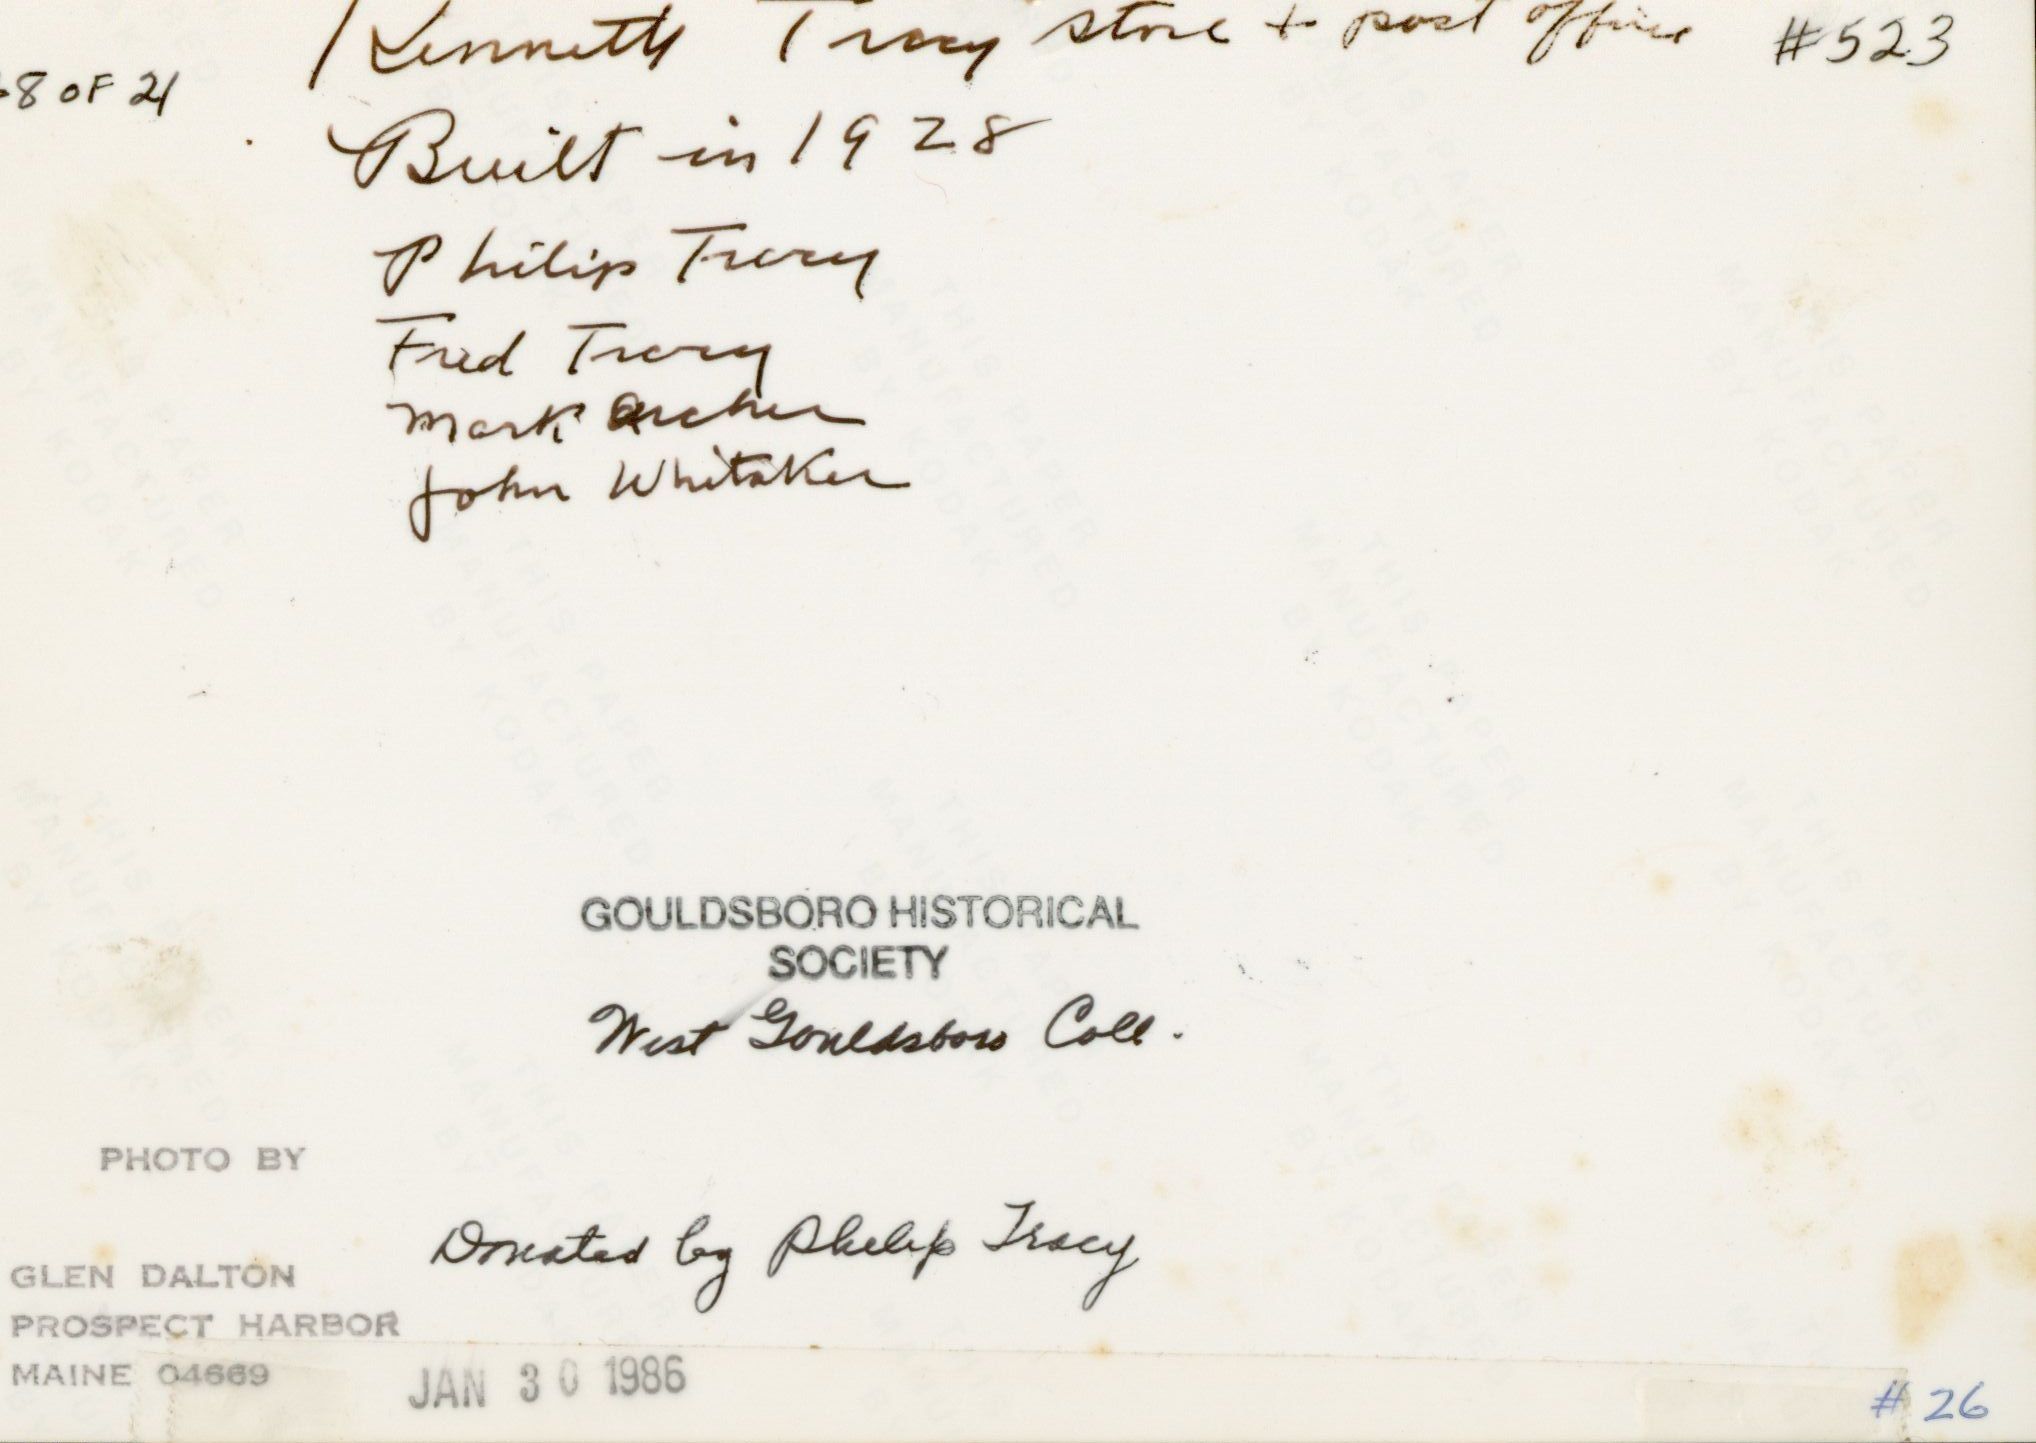 Kenneth Tracy store + post office #523
8 OF 21
Built in 1928
Philip Tracy
Fred Tracy
Mark Archer
John Whitaker
GOULDSBORO HISTORICAL
SOCIETY
West Gouldsboro Coll.
PHOTO BY
Donated by Philip Tracy
GLEN DALTON
PROSPECT HARBOR
MAINE 04669
JAN 30 1986
#26
THIS PAPER
MANUFACTURED
BY KODAK